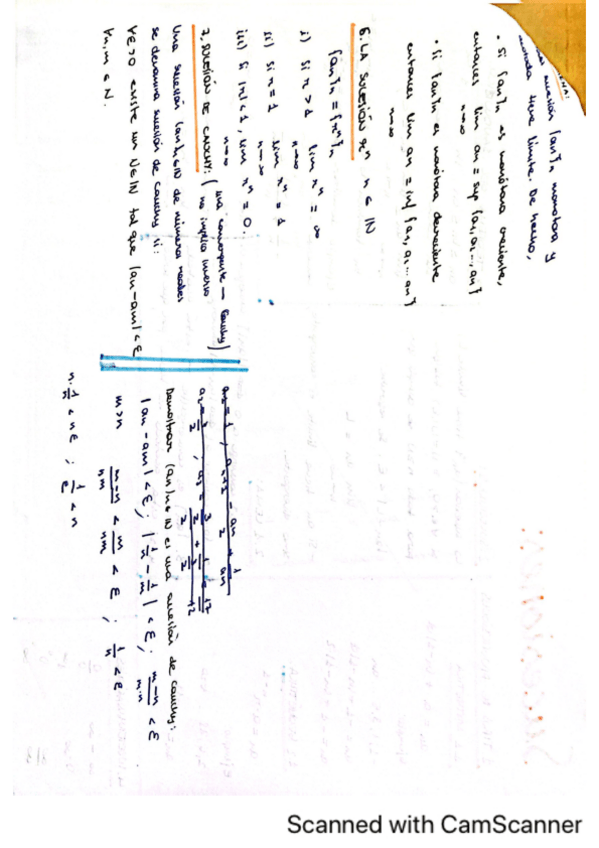 sucesión {an}n monótona y
acotada tiene límite. De hecho,
· Si {an}n es monótona creciente,
entonces lim an = sup {a1, a2..., an}
n→∞
· Si {an}n es monótona decreciente
entonces lim an = inf {a1, a2... an}
n→∞
6. LA SUCESIÓN xⁿ n ∈ ℕ
{an}n = {xⁿ}n
i) Si x > 1 lim xⁿ = ∞
n→∞
ii) Si x = 1 lim xⁿ = 1
n→∞
iii) Si |x| < 1, lim xⁿ = 0.
n→∞
7. SUCESIÓN DE CAUCHY: (una convergente → Cauchy)
no implica inverso
Una sucesión (an)n∈ℕ de números reales
se denomina sucesión de cauchy si:
∀ε>0 existe un N∈ℕ tal que |an-am| < ε
∀n,m ∈ N.
a1 = 1, an+1 = an/2 + 1/an
a2 = 3/2, a3 = 3/2/2 + 1/3/2 = 17/12
Demostrar (an)n∈ℕ es una sucesión de cauchy:
|an-am| < ε; |1/n - 1/m| < ε; m-n/m·n < ε
m>n m-n/nm < m/nm < ε ; 1/n < ε
n·1/n < nε ; 1/ε < n
Scanned with CamScanner